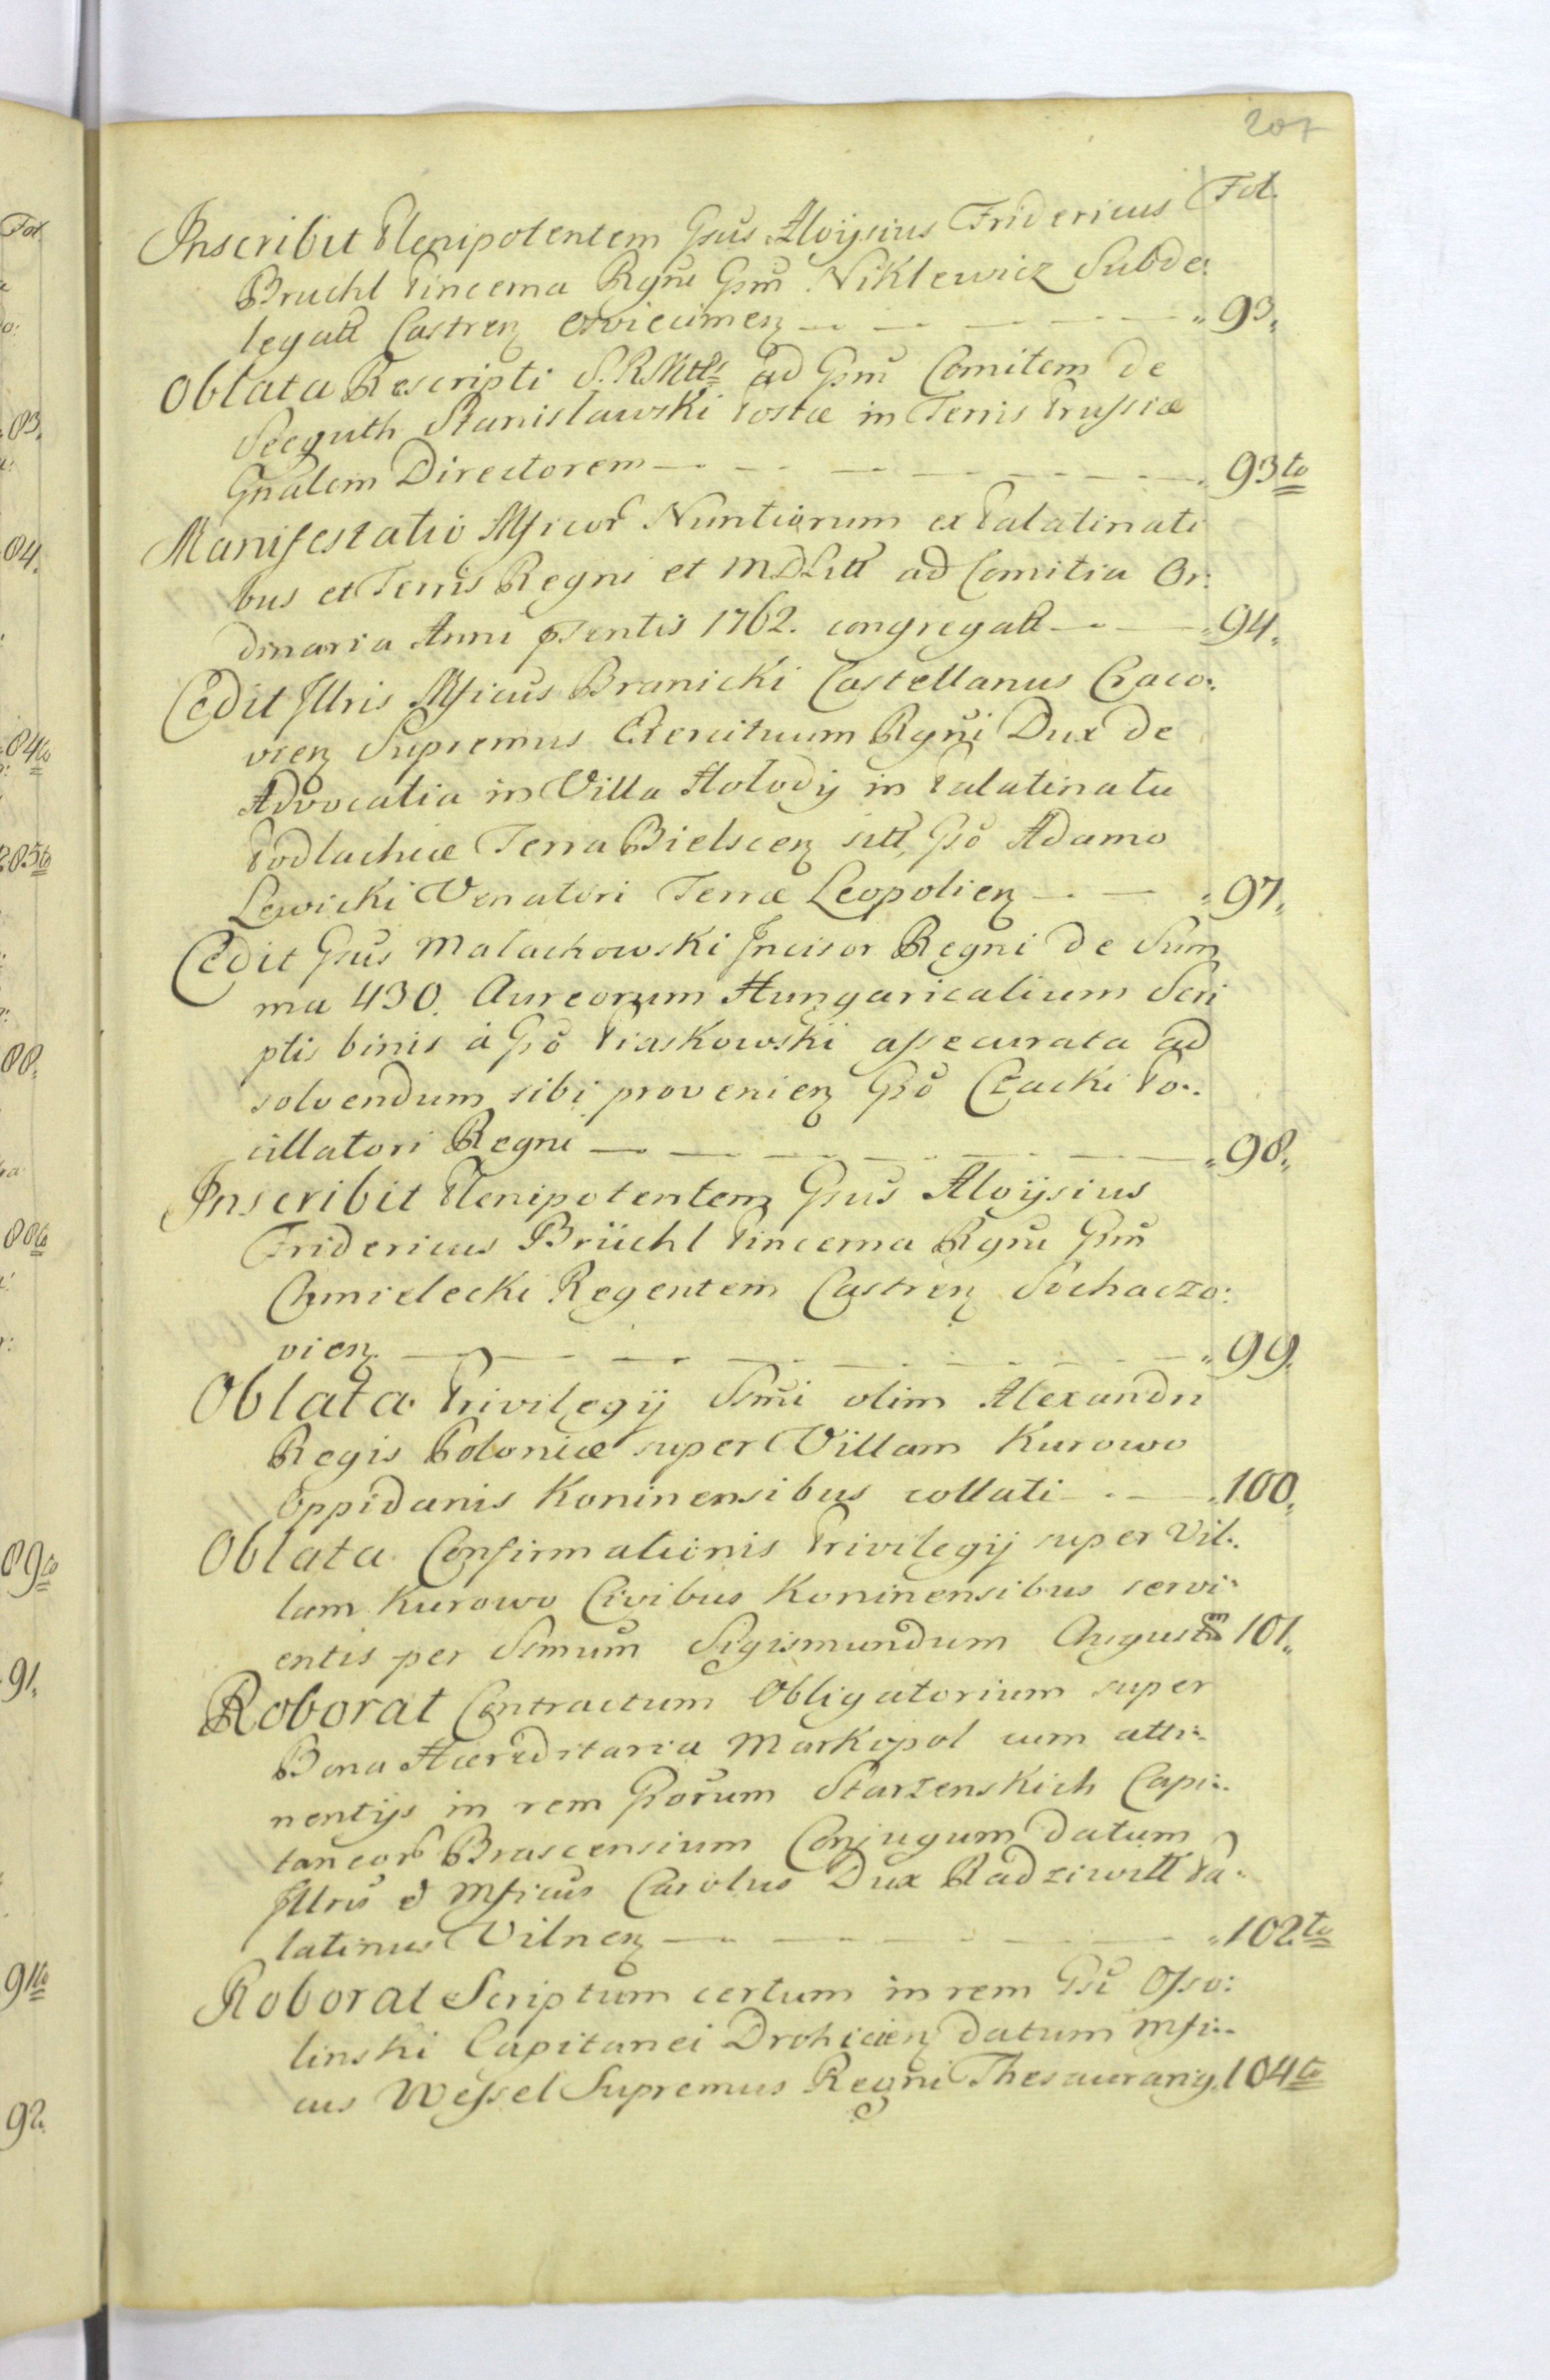 207
Fol.
Inscribit Plenipotentem Gsus Aloysius Fridericus
Bruchl Pincerna Rgni Gsm Niklewicz Subde:
legatt Castren
93.
Oblata Rescripti S.R.Mttis ad Gsm Comitem de
Seeguth Stanislawski Postæ in Terris Prussiæ
Gnalem Directorem
93to
Manifestatio Mficor Nuntiorum ex Palatinati
bus et Terris Regni et M.D.Litt ad Comitia Or:
dinaria Anni psentis 1762. congregatt
94.
Cedit Illris Mficus Branicki Castellanus Craco:
vien Supremus Exercituum Rgni Dux de
Advocatia in Villa Hołody in Palatinatu
Podlachiæ Terra Bielscen sitt, Gso Adamo
Lewicki Venatori Terræ Leopolien
97.
Cedit Gsus Malachowski Incisor Regni de Sum
ma 430. Aureorum Hungaricalium Scri
ptis binis à Gso Piaskowski assecurata ad
solvendum sibi provenien Gso Czacki Po:
cillatori Regni
98.
Inscribit Plenipotentem Gsus Aloysius
Fridericus Brüchl Pincerna Rgni Gsm
Chmielecki Regentem Castren Sochaczo:
vien
99.
Oblata Privilegij Ssmi olim Alexandri
Regis Poloniæ super Villam Kurowo
Oppidanis Koninensibus collati
100.
Oblata Confirmationis Privilegij super Vil:
lam Kurowo Civibus Koninensibus servi:
entis per Ssmum Sigismundum Augustm 101.
Roborat Contractum Obligatorium super
Bona Hæreditaria Markopol cum atti:
nentijs in rem Gsorum Starzenskich Capi:
taneor Brascensium Conjugum datum
Illris et Mficus Carolus Dux Radziwiłł Pa:
latinus Vilnen
102to
Roborat Scriptum certum in rem Gsi Osso:
linski Capitanei Drohicien datum Mfi:
cus Wessel Supremus Regni Thesaurarig. 104to
Fol
03.
04.
04to
05to
00.
00to
09to
91.
91to
92.